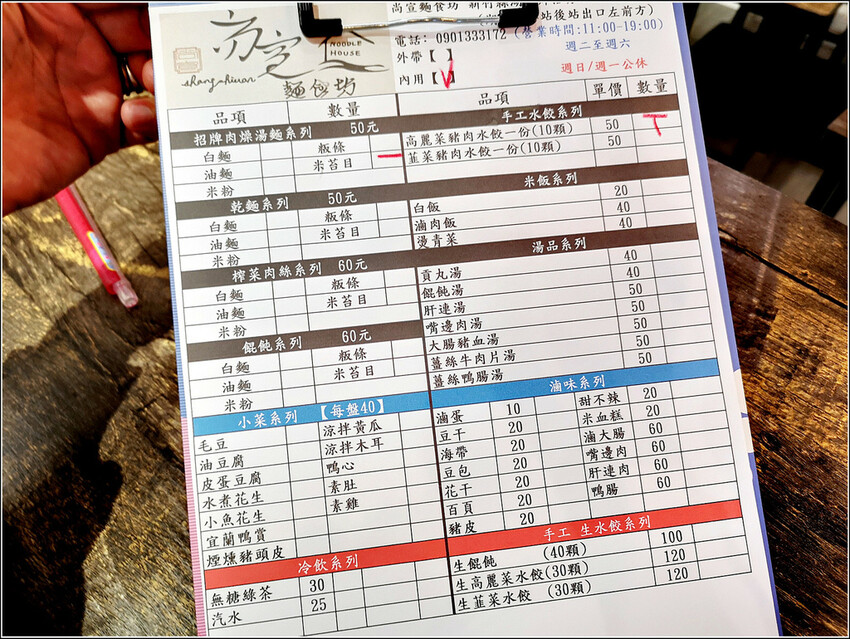 尚宣麵食坊
NOODLE HOUSE
shang shiuan
麵食坊
站後站出口左前方)
電話: 0901333172 (營業時間:11:00-19:00)
外帶【 】 週二至週六
內用【V】 週日/週一公休
品項 數量 品項 單價 數量
招牌肉燥湯麵系列 50元
白麵 粄條 一
油麵 米苔目
米粉
乾麵系列 50元
白麵 粄條
油麵 米苔目
米粉
榨菜肉絲系列 60元
白麵 粄條
油麵 米苔目
米粉
餛飩系列 60元
白麵 粄條
油麵 米苔目
米粉
小菜系列 【每盤40】
毛豆 涼拌黃瓜
油豆腐 涼拌木耳
皮蛋豆腐 鴨心
水煮花生 素肚
小魚花生 素雞
宜蘭鴨賞
煙燻豬頭皮
冷飲系列
無糖綠茶 30
汽水 25
手工水餃系列
高麗菜豬肉水餃一份(10顆) 50
韭菜豬肉水餃一份(10顆) 50
米飯系列
白飯 20
滷肉飯 40
燙青菜 40
湯品系列
貢丸湯 40
餛飩湯 40
肝連湯 50
嘴邊肉湯 50
大腸豬血湯 50
薑絲牛肉片湯 50
薑絲鴨腸湯 50
滷味系列
滷蛋 10 甜不辣 20
豆干 20 米血糕 20
海帶 20 滷大腸 60
豆包 20 嘴邊肉 60
花干 20 肝連肉 60
百頁 20 鴨腸 60
豬皮 20
手工 生水餃系列
生餛飩 (40顆) 100
生高麗菜水餃(30顆) 120
生韭菜水餃 (30顆) 120